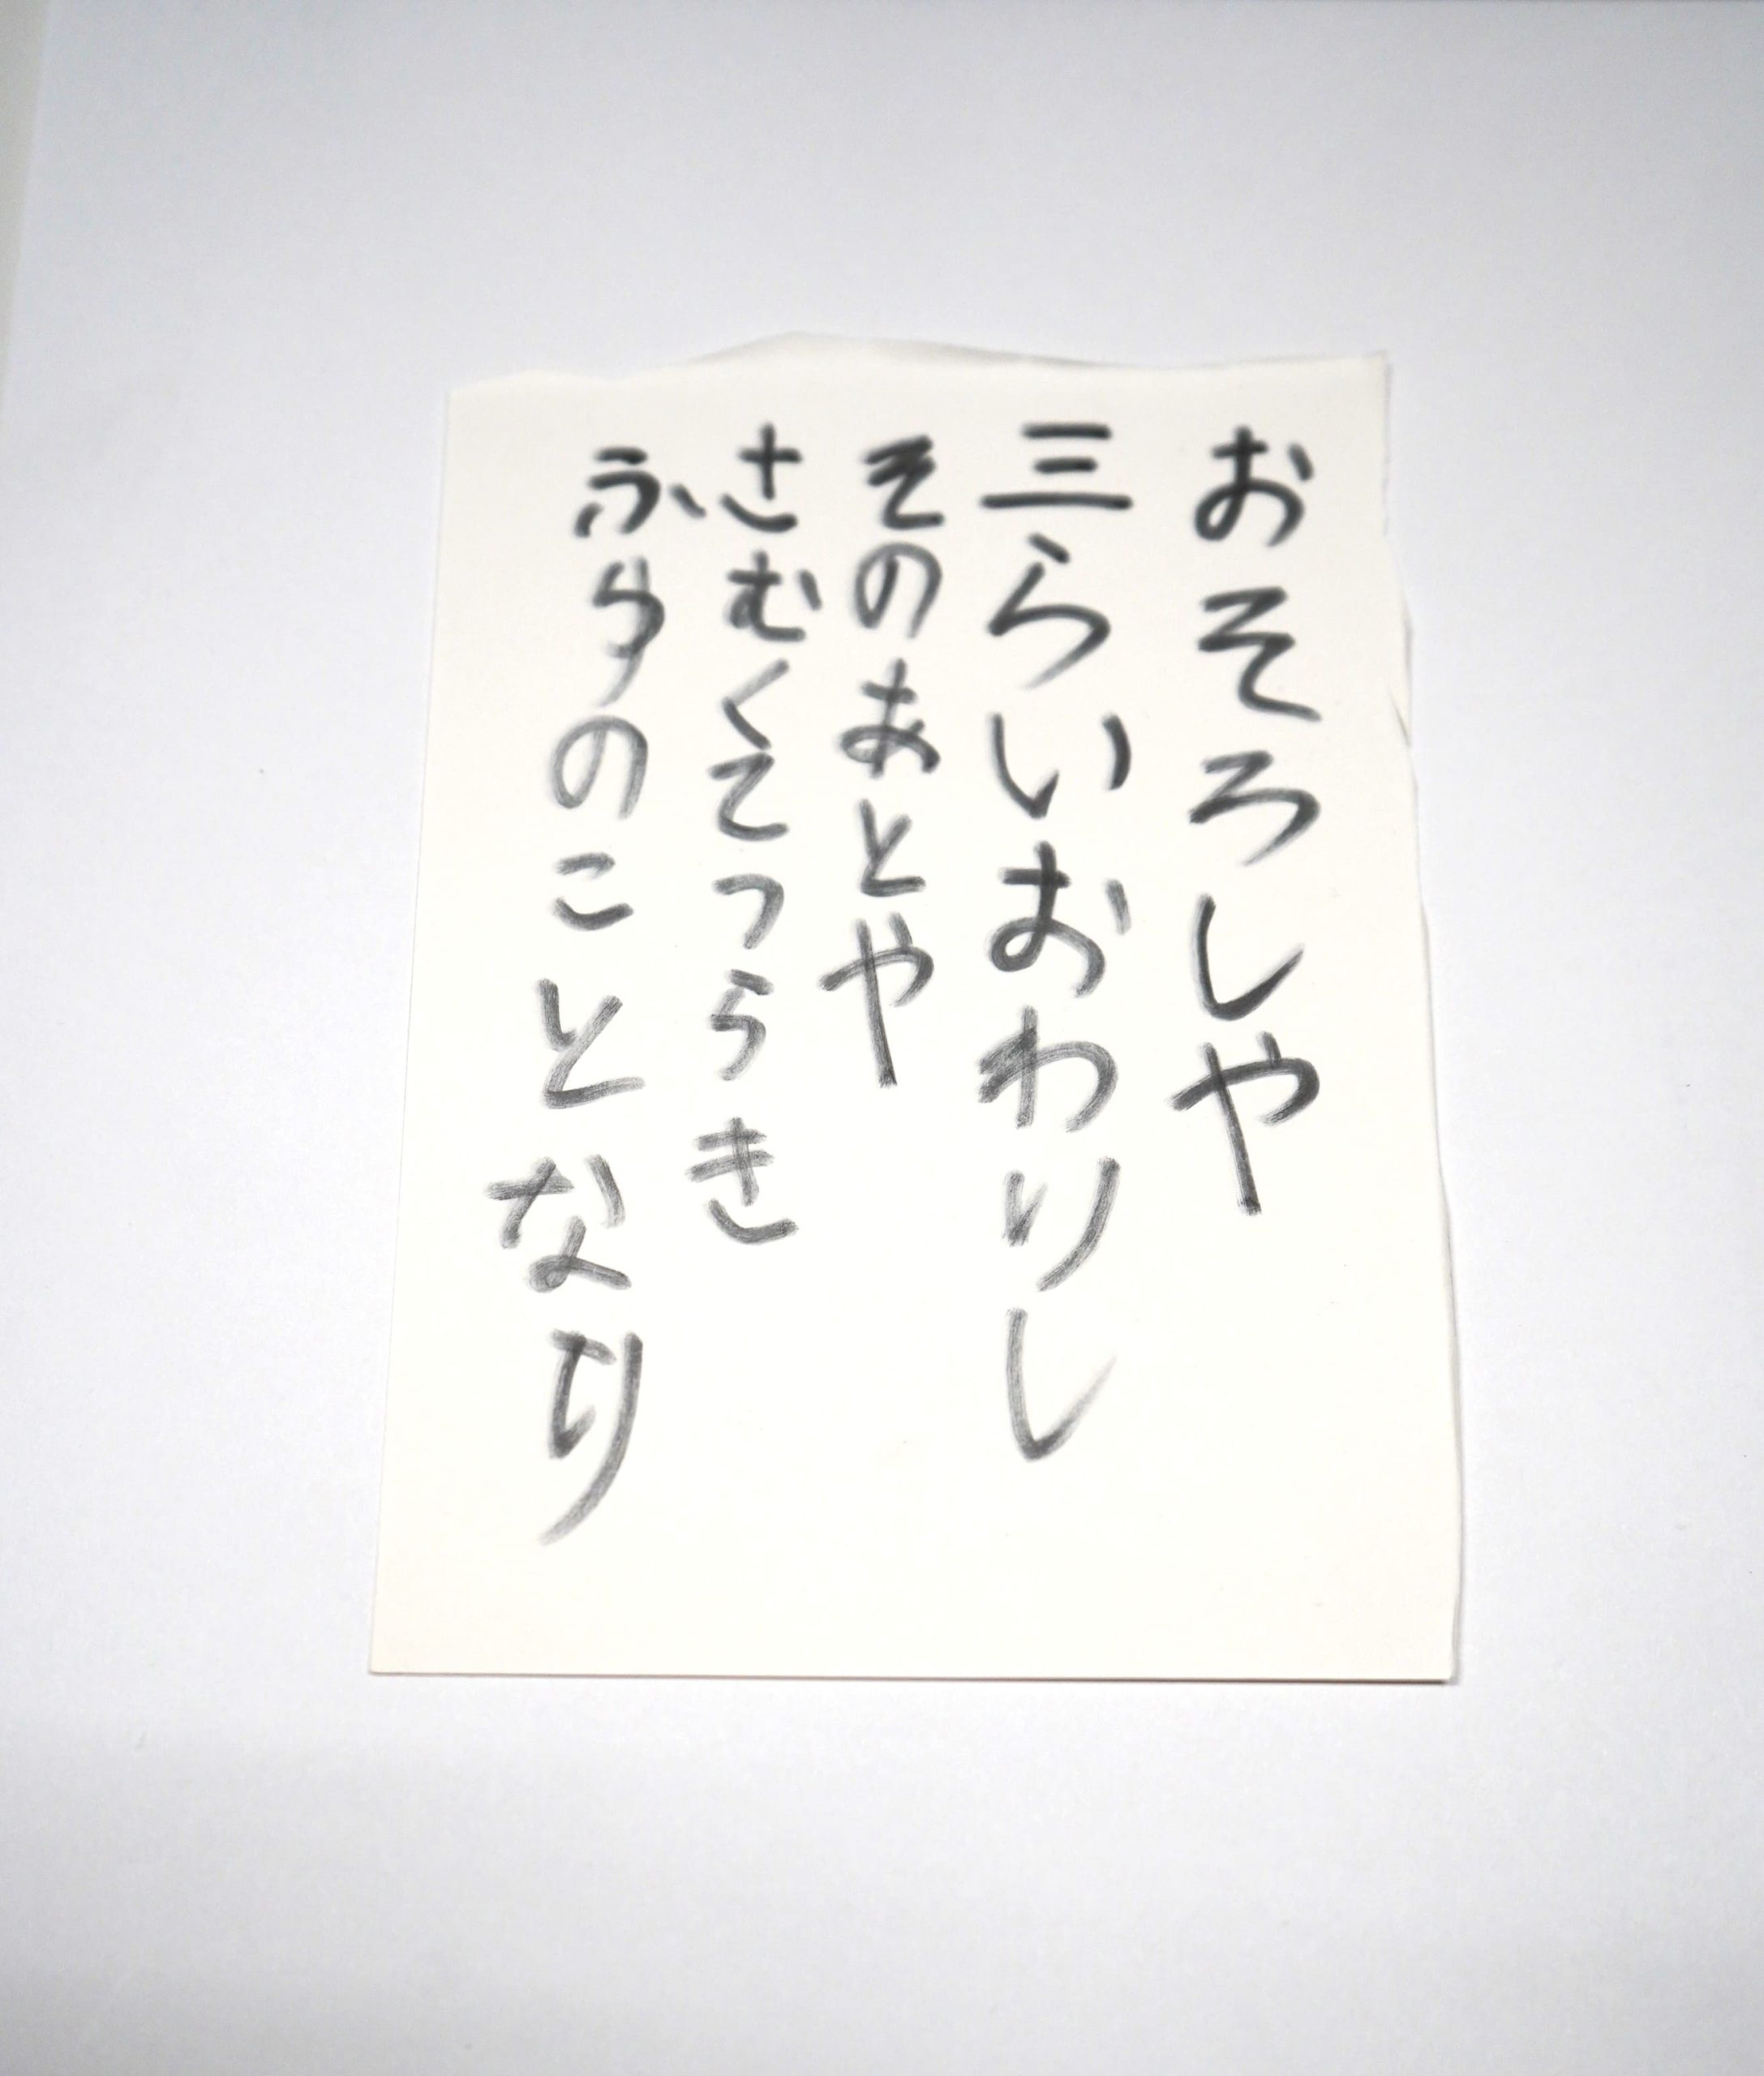 おそろしや
三らいおわりし
そのあとや
さむくてつらき
ふゆのことなり